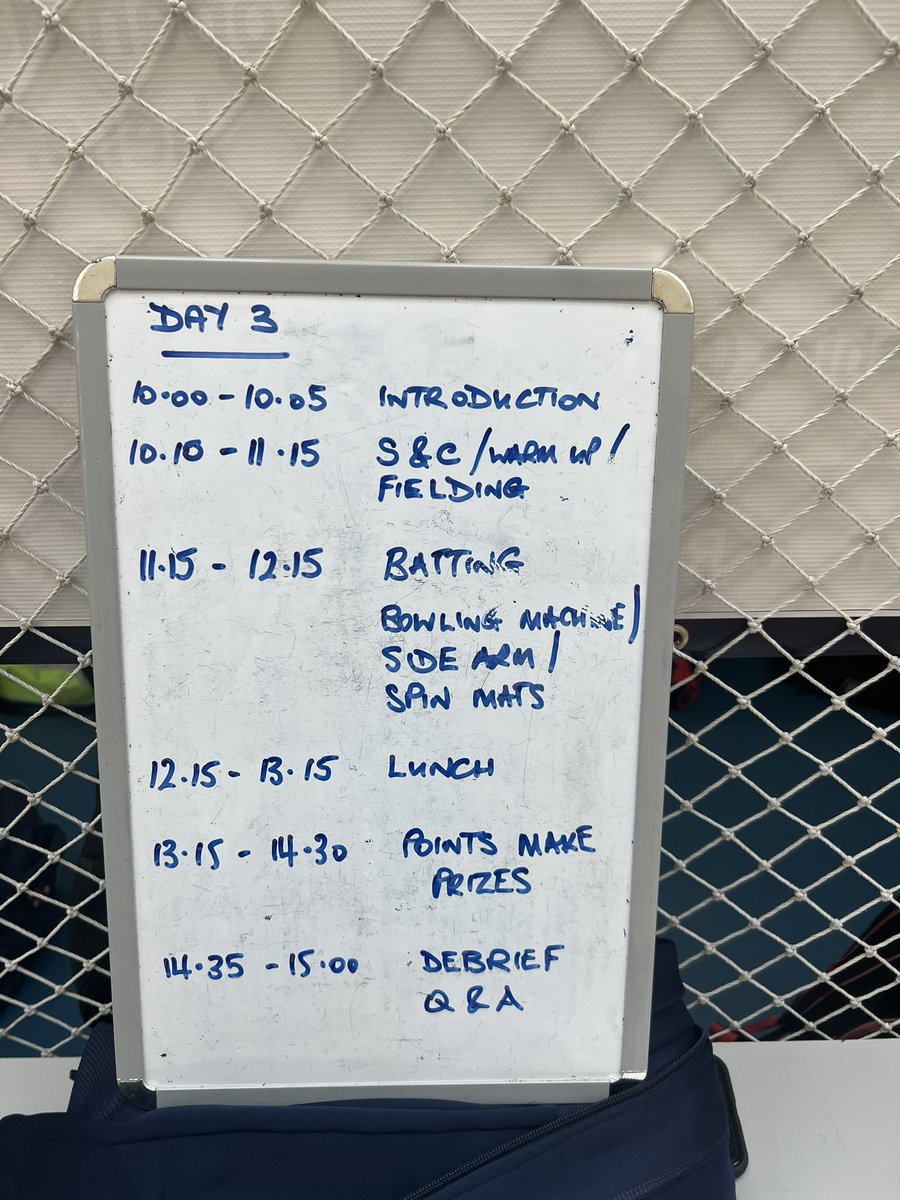 DAY 3
10.00 - 10.05 INTRODUCTION
10.10 - 11.15 S & C / WARM UP /
FIELDING
11.15 - 12.15 BATTING
BOWLING MACHINE /
SIDE ARM /
SPIN MATS
12.15 - 13.15 LUNCH
13.15 - 14.30 POINTS MAKE
PRIZES
14.35 - 15.00 DEBRIEF
Q & A